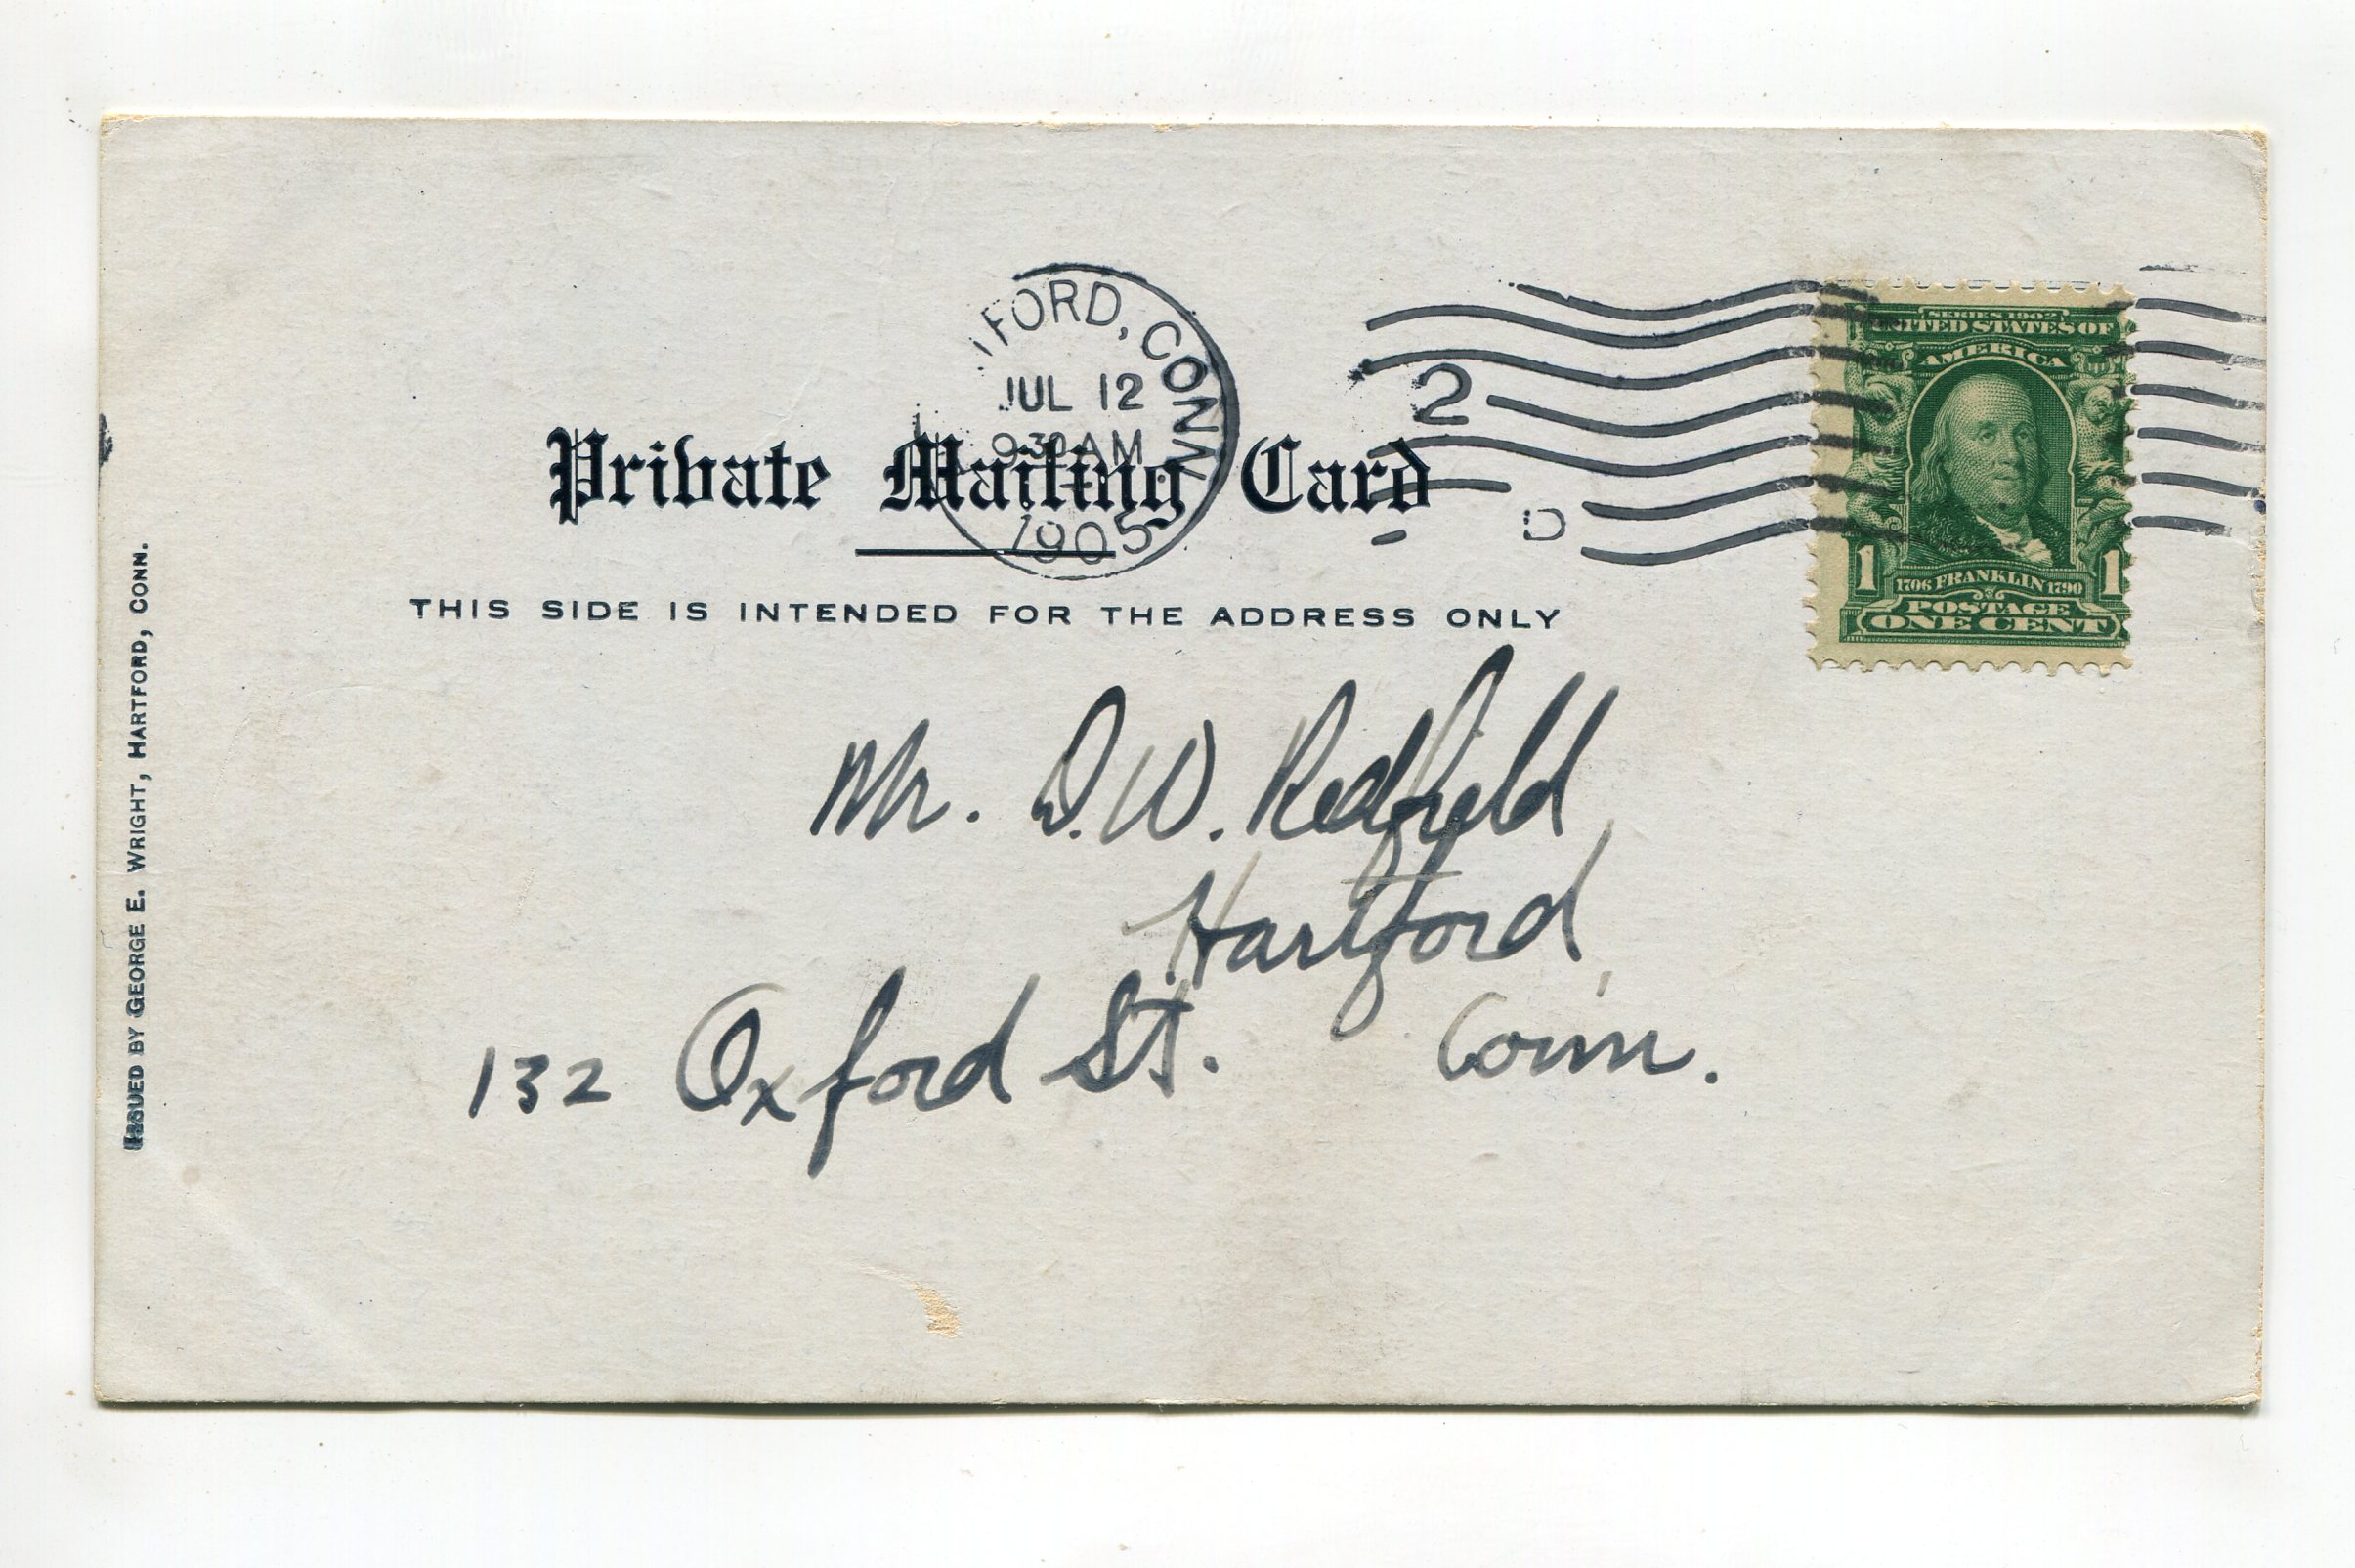 FORD, CONN.
JUL 12
930 AM
1905
2
D
SERIES 1902
UNITED STATES OF
AMERICA
1 1706 FRANKLIN 1790 1
POSTAGE
ONE CENT
Private Mailing Card
THIS SIDE IS INTENDED FOR THE ADDRESS ONLY
Mr. D. W. Redfield
Hartford,
132 Oxford St. Conn.
ISSUED BY GEORGE E. WRIGHT, HARTFORD, CONN.